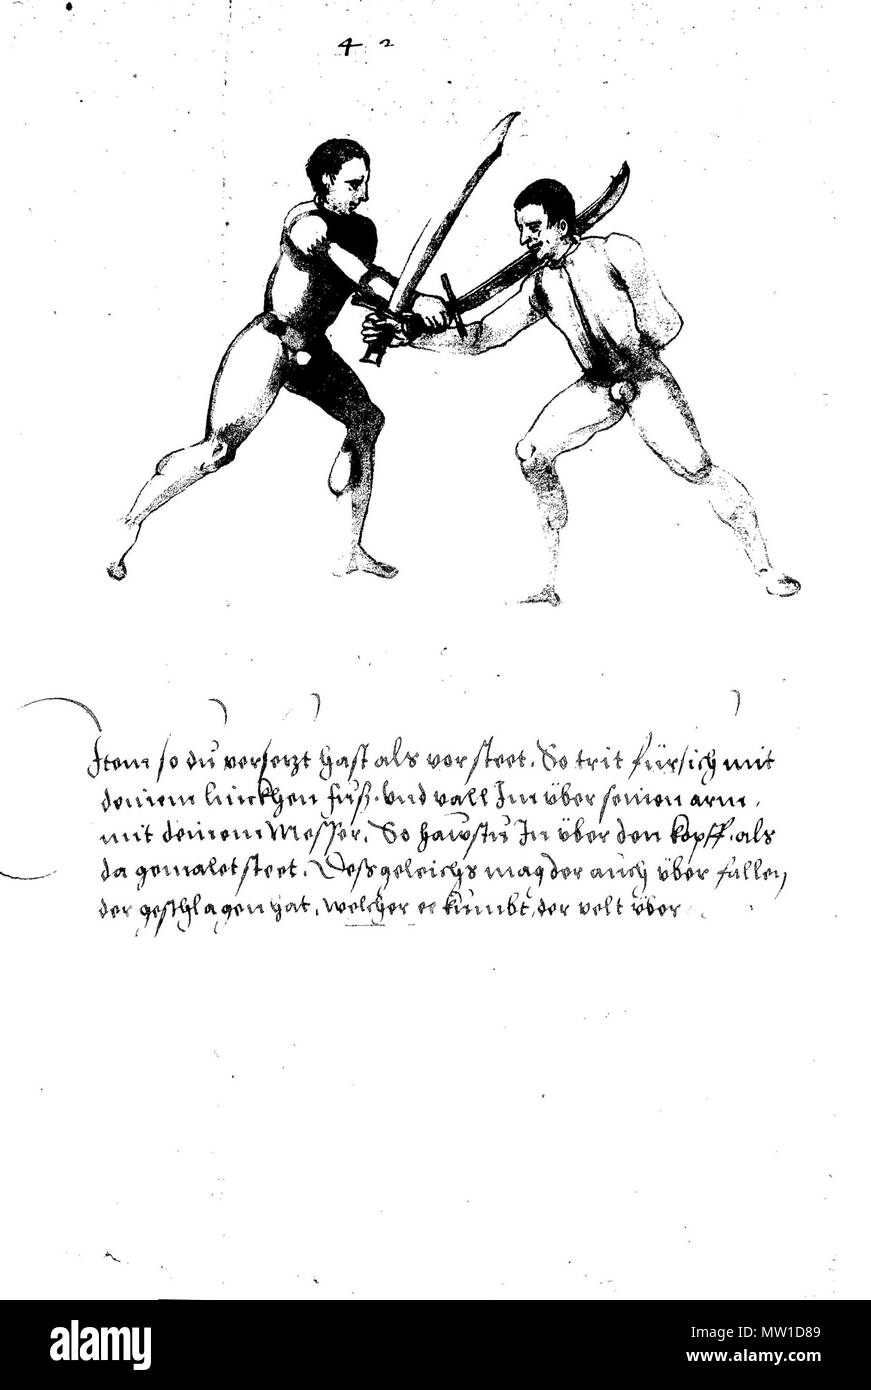 4 2
Item so du versetzt hast als vor steet. So trit fürsich mit
deinem linckhen fuß. und vall Im über seinen arm.
mit deinem Messer. So hawstu In über den kopff. als
da gemalet steet. Deßgeleichs mag der auch über fallen
der geschlagen hat. welcher ee kumbt, der velt über
a alamy stock photo
alamy
Image ID: MW1D89
www.alamy.com